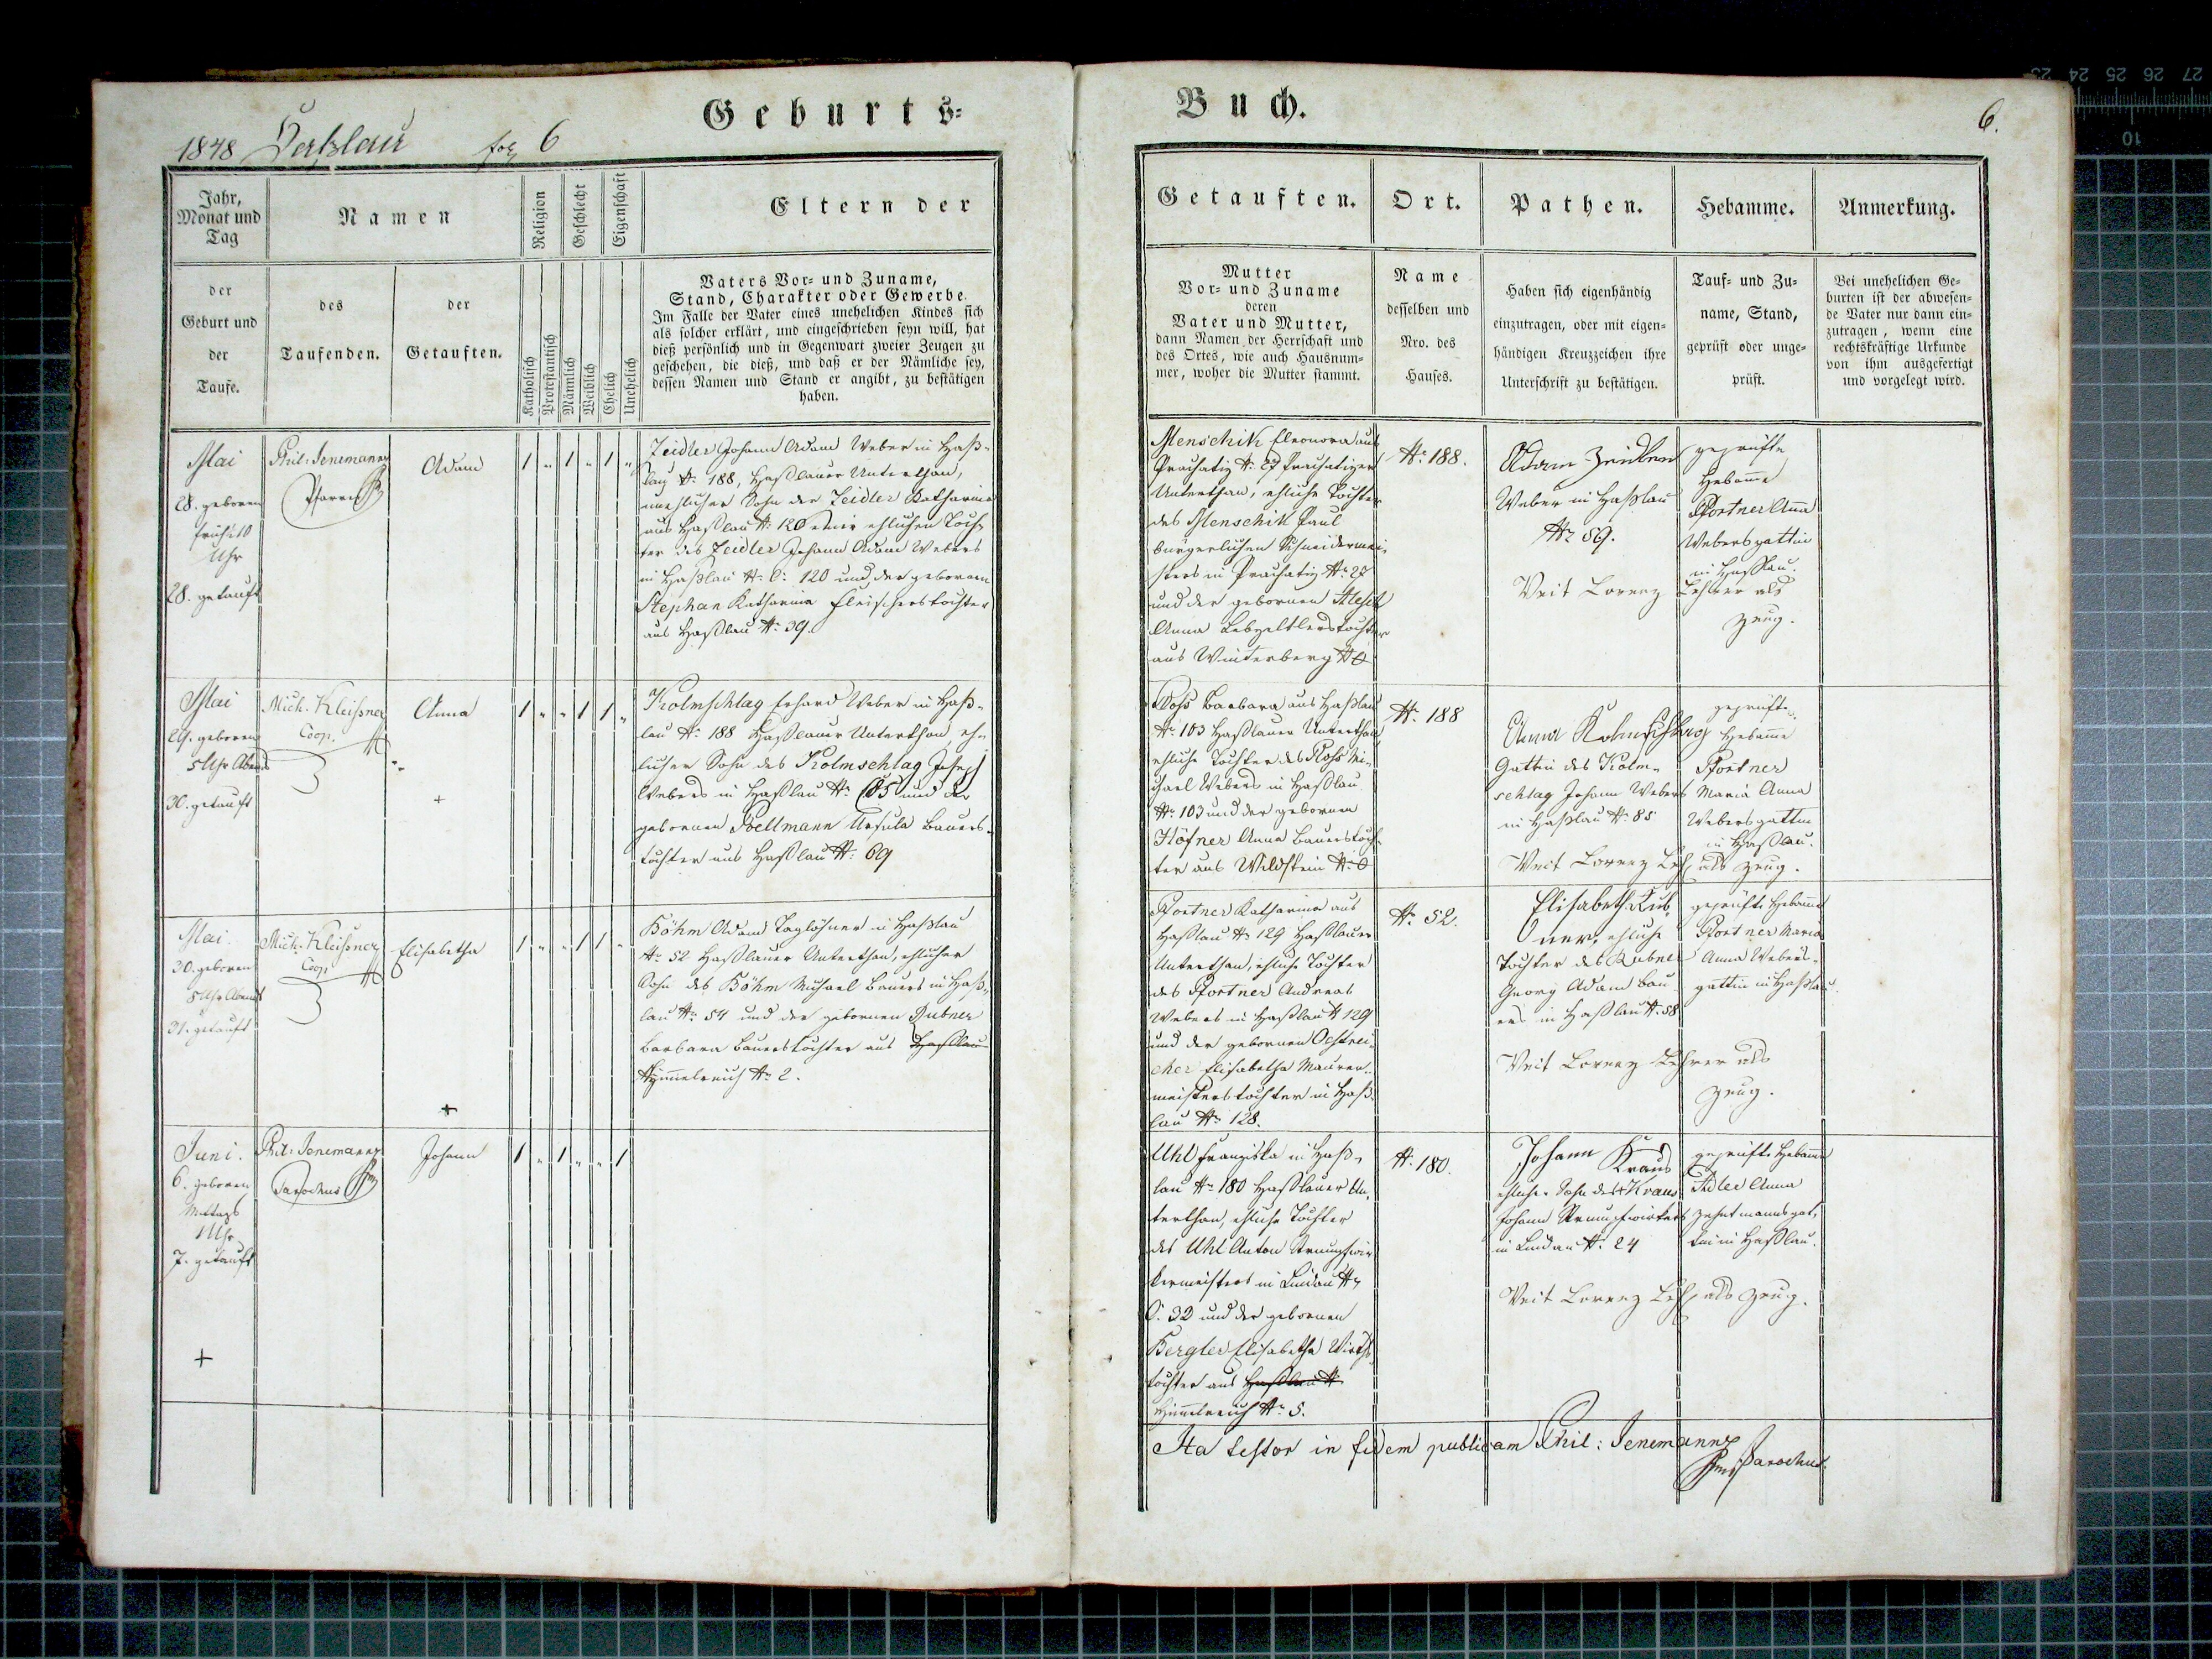 Geburts=
1848 Haßlau fol 6
Jahr,
Monat und
Tag
Namen
Religion
Geschlecht
Eigenschaft
Eltern der
der
Geburt und
der
Taufe.
des
Taufenden.
der
Getauften.
Katholisch
Protestantisch
Männlich
Weiblich
Ehelich
Unehelich
Vaters Vor= und Zuname,
Stand, Charakter oder Gewerbe.
Im Falle der Vater eines unehelichen Kindes sich
als solcher erklärt, und eingeschrieben seyn will, hat
dieß persönlich und in Gegenwart zweier Zeugen zu
geschehen, die dieß, und daß er der Nämliche sey,
dessen Namen und Stand er angibt, zu bestätigen
haben.
Mai
28. geboren
früh 10
Uhr
28. getauft
Phil: Jenemann
Pfarrer
Adam
1 „ 1 „ 1 „
Zeidler Johann Adam Weber in Haß=
lau N: 188, Haßlauer Unterthan,
unehlicher Sohn der Zeidler Katharina
aus Haßlau N: 120 einer ehlichen Toch=
ter des Zeidler Johann Adam Webers
in Haßlau N: C: 120 und der gebornen
Stephan Katharina Fleischerstochter
aus Haßlau N: 39.
Mai
29. geboren
5 Uhr Abends
30. getauft
Mich. Kleißner
Coop.
Anna
+
1 „ „ 1 1 „
Kolmschlag Erhard Weber in Haß=
lau N: 188 Haßlauer Unterthan eh=
licher Sohn des Kolmschlag Joseph
Webers in Haßlau N: 85 und der
gebornen Poellmann Ursula Bauers=
tochter aus Haßlau N: 69
Mai.
30. geboren
5 Uhr Abends
31. getauft
Mich. Kleißner
Coop
Elisabetha
+
1 „ „ 1 1 „
Böhm Adam Taglöhner in Haßlau
N: 52 Haßlauer Unterthan, ehlicher
Sohn des Böhm Michael Bauers in Haß=
lau N: 54 und der gebornen Rubner
Barbara Bauerstochter aus Haßlau
Himmelreich N: 2.
Juni.
6. geboren
Mittags
1 Uhr
7. getauft
+
Phil: Jenemann
Parochus
Johann
1 „ 1 „ „ 1
Buch.
6.
Getauften.
Ort.
Pathen.
Hebamme.
Anmerkung.
Mutter
Vor= und Zuname
deren
Vater und Mutter,
dann Namen der Herrschaft und
des Ortes, wie auch Hausnum=
mer, woher die Mutter stammt.
Name
desselben und
Nro. des
Hauses.
Haben sich eigenhändig
einzutragen, oder mit eigen=
händigen Kreuzzeichen ihre
Unterschrift zu bestätigen.
Tauf= und Zu=
name, Stand,
geprüft oder unge=
prüft.
Bei unehelichen Ge=
burten ist der abwesen=
de Vater nur dann ein=
zutragen, wenn eine
rechtskräftige Urkunde
von ihm ausgefertigt
und vorgelegt wird.
Menschik Eleonora aus
Prachatiz N: 27 Prachatizer
Unterthan, ehliche Tochter
des Menschik Paul
bürgerlichen Schneidermei=
sters in Prachatiz N: 27
und der gebornen
Anna Lebzeltlerstochter
aus Winterberg N: 0
N: 188.
Adam Zeidler
Weber in Haßlau
N: 59.
Veit Lorenz Lehrer als
Zeug.
geprüfte
Hebamme
Pfortner Anna
Webersgattin
in Haßlau.
Ploß Barbara aus Haßlau
N: 103 Haßlauer Unterthan
ehliche Tochter des Ploß Mi=
chael Webers in Haßlau
N: 103 und der gebornen
Höfner Anna Bauerstoch=
ter aus Wildstein N: 0
N: 188
Anna Kolmschlag
Gattin des Kolm=
schlag Johann Webers
in Haßlau N: 85
Veit Lorenz Leh als Zeug.
geprüfte
Hebamme
Pfortner
Maria Anna
Webersgattin
in Haßlau.
Pfortner Katharina aus
Haßlau N: 129 Haßlauer
Unterthan, ehliche Tochter
des Pfortner Andreas
Webers in Haßlau N 129
und der gebornen Oestrei=
cher Elisabetha Maurer=
meisterstochter in Haß=
lau N: 128.
N: 52.
Elisabeth Rub=
ner, ehliche
Tochter des Rubner
Georg Adam Bau
ers in Haßlau N: 58
Veit Lorenz Lehrer als
Zeug.
geprüfte Hebamme
Pfortner Maria
Anna Webers=
gattin in Haßlau.
Uhl Franziska in Haß=
lau N: 180 Haßlauer Un=
terthan, ehliche Tochter
des Uhl Anton Strumpfwir=
kermeisters in Lindau N:
C. 32 und der gebornen
Bergler Elisabetha Wirths
tochter aus Haßlau N:
Himmelreich N: 5.
N: 180.
Johann Kraus
ehlicher Sohn des + Kraus
Johann Strumpfwirkers
in Lindau N: 24
Veit Lorenz Leh als Zeug.
geprüfte Hebamme
Adler Anna
Zehetmannsgat=
tin in Haßlau.
Ita testor in fidem publicam Phil: Jenemann
Parochus.